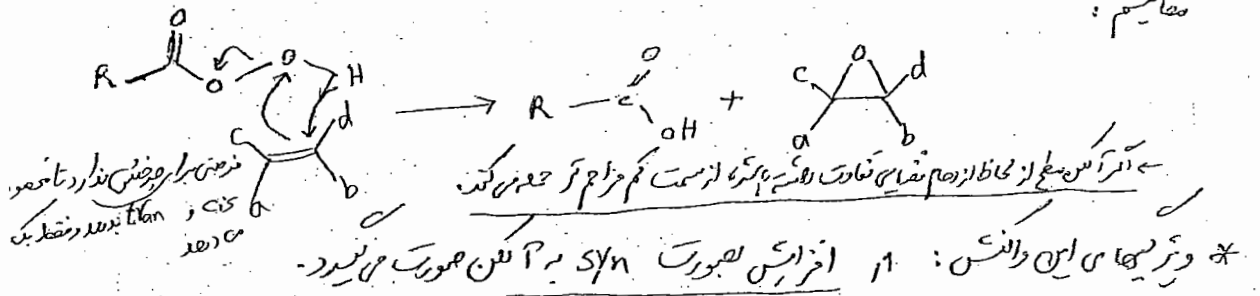 مکانیسم :
R O O O H → R C O OH + O
c d a b c d a b
فرصتی برای چرخش ندارد تا محصول
cis و tran بدهد و فقط یک
می دهد
← اگر آلکن سطح از لحاظ ازدحام فضایی تفاوت داشته باشند، از سمت کم مزاحم تر حمله می کند.
* ویژگیهای این واکنش : ۱, افزایش بصورت syn به آلکن صورت می گیرد.